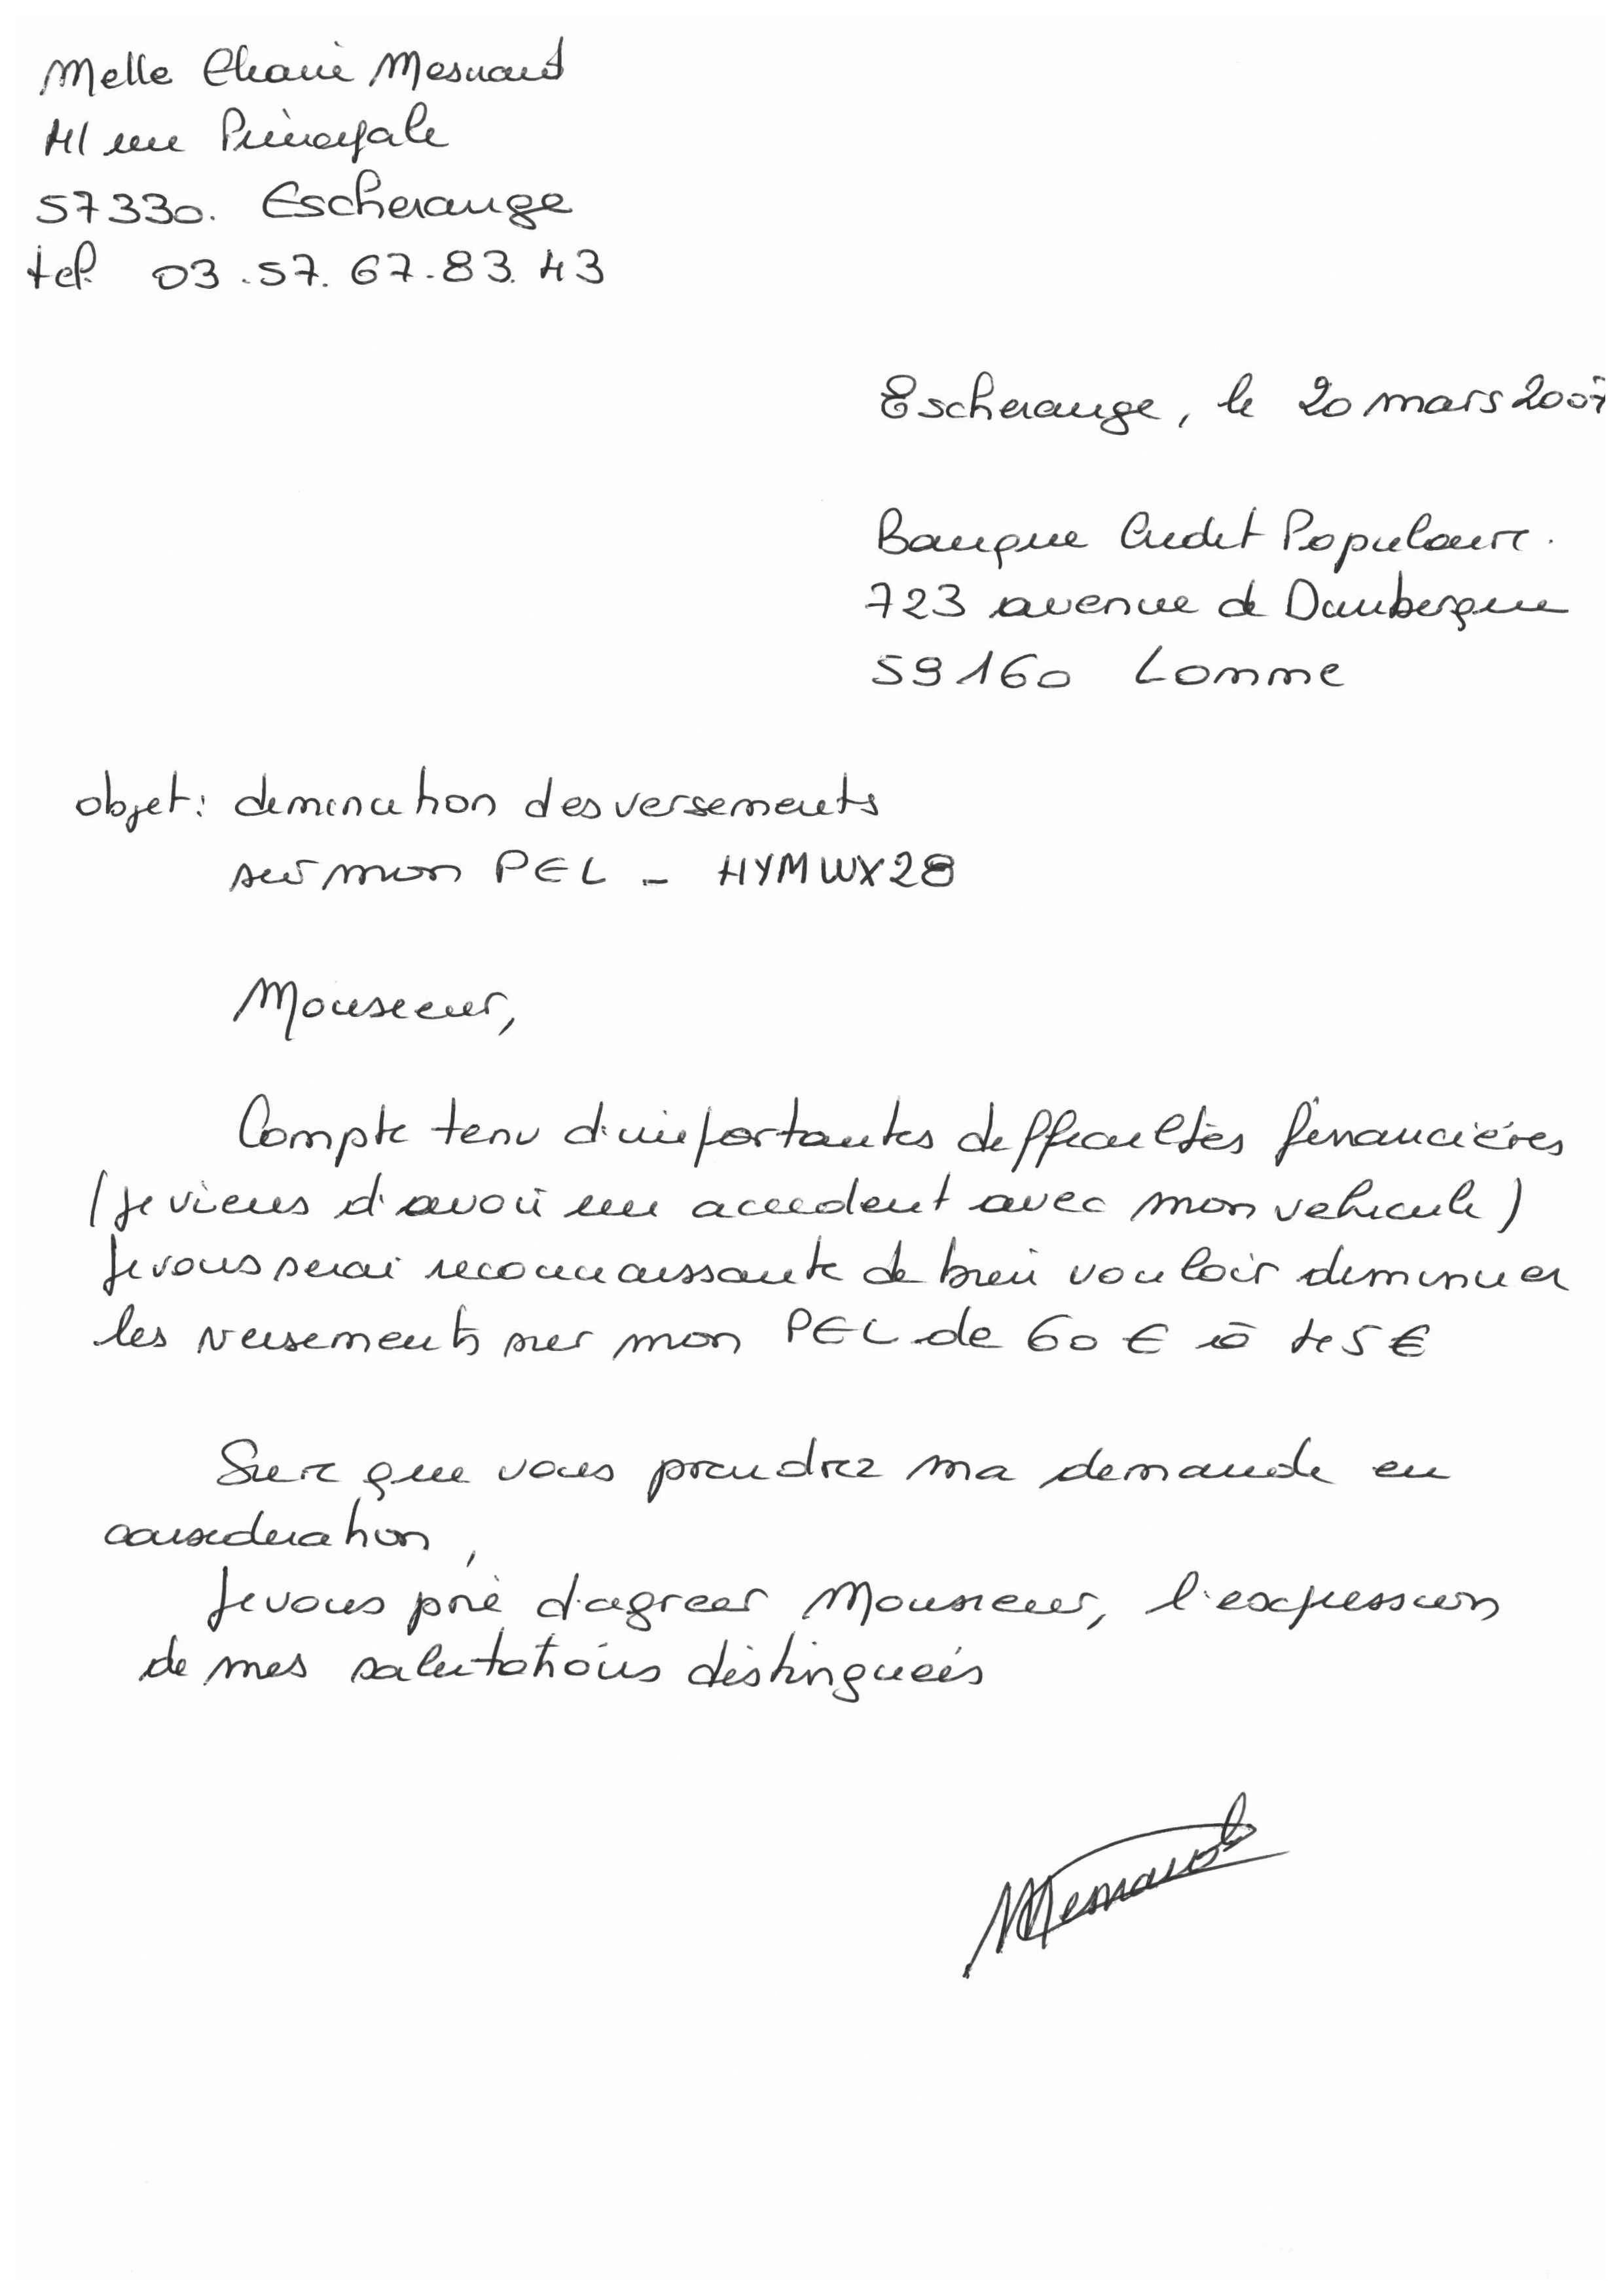 Melle Marie Mesnard
41 rue Principale
57330. Escherange
tel. 03.57.67.83.43
Escherange, le 20 mars 2007
Banque Credit Populaire.
723 avenue de Dunkerque
59160 Lomme
objet: diminution des versements
sur mon PEL - HYMWX28
Monsieur,
Compte tenu d'importantes difficultés financières
(je viens d'avoir un accident avec mon vehicule)
Je vous serai reconnaissante de bien vouloir diminuer
les versements sur mon PEL de 60 € à 45 €
Sure que vous prendrez ma demande en
consideration,
Je vous prie d'agreer Monsieur, l'expression
de mes salutations distinguées
Mesnard